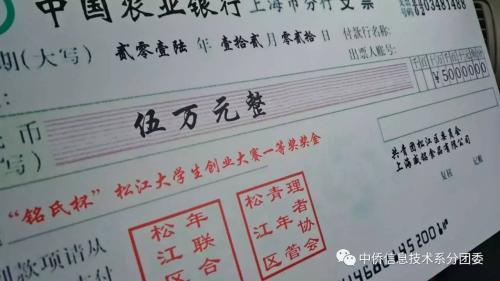 中国农业银行 上海市分行 支票
0203481488
期(大写) 贰零壹陆 年 壹拾贰 月 零贰拾 日
付款行名称:
出票人账号:
币
写)
伍万元整
¥5000000
“铭氏杯”松江大学生创业大赛一等奖奖金
共青团松江区委员会
上海威铭食品有限公司
松江区
年联合
松江区
青年管
理者协会
款项请从
复核
中侨信息技术系分团委